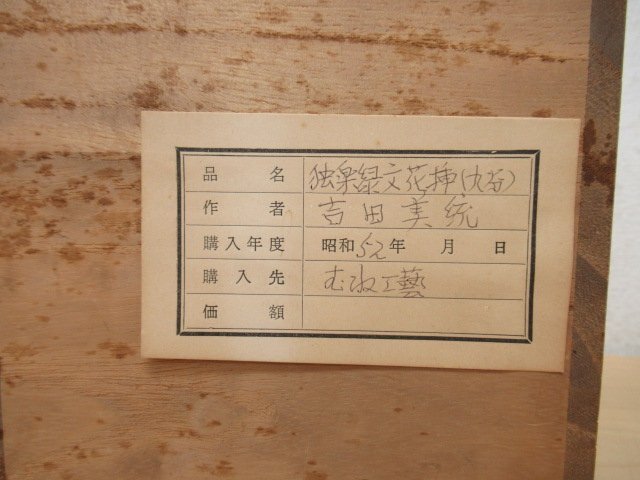 品名 独楽線文花挿(九谷)
作者 吉田美統
購入年度 昭和52年 月 日
購入先 むね工藝
価額